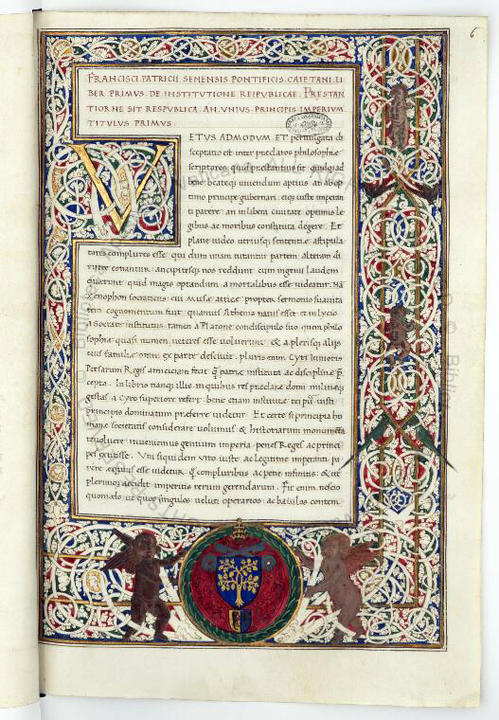 6
FRANCISCI PATRICII SENENSIS PONTIFICIS CAIETANI LI
BER PRIMUS DE INSTITUTIONE REIPUBLICAE. PRESTAN
TIORNE SIT RESPUBLICA AN UNIUS PRINCIPIS IMPERIUM
TITULUS PRIMUS.
VETUS ADMODUM ET pervulgata di
sceptatio est inter praeclaros philosophiae
scriptores quid praestantius sit quidq; ad
bene beateq; vivendum aptius an ab op
timo principe gubernari eiq; iuste imperan
ti parere an in libera civitate optimis le
gibus ac moribus constituta degere. Et
plane video utriusq; sententiae astipula
tores complures esse qui dum unam tutantur partem alteram di
ruere conantur ancipitesq; nos reddunt cum
quid magis optandum a mortalibus esse videatur. Nã
Xenophon socraticus cui Musae atticae propter sermonis suavita
tem cognomentum fuit quamvis Athenis natus esset et in lycio
a Socrate institutus tamen a Platone condiscipulo suo quem philo
sophiae quasi numen veteres esse voluerunt & a plerisq; aliis
eius familiae omni ex parte descivit. pluris enim Cyri
Persarum Regis amiciciam fecit q̃ patriae instituta ac disciplinae p̃
cepta. In libris tamq; illis in quibus res praeclare domi militiaeq;
gestas a Cyro superiore refert bene etiam institutae rei pu. iusti
principis dominatum praeferre videtur. Et certe si principia hu
manae societatis considerare volumus & historiarum monumẽta
revolvere inveniemus gentium imperia penes Reges ac princi
pes extitisse. Uni siquidem viro iuste ac legitime imperanti pa
rere aequius esse videtur q̃ compluribus ac pene infinitis: & ut
plerunq; accidit imperitis rerum gerendarum. Fit enim nescio
quomodo ut quos singulos veluti operarios ac baiulos contem